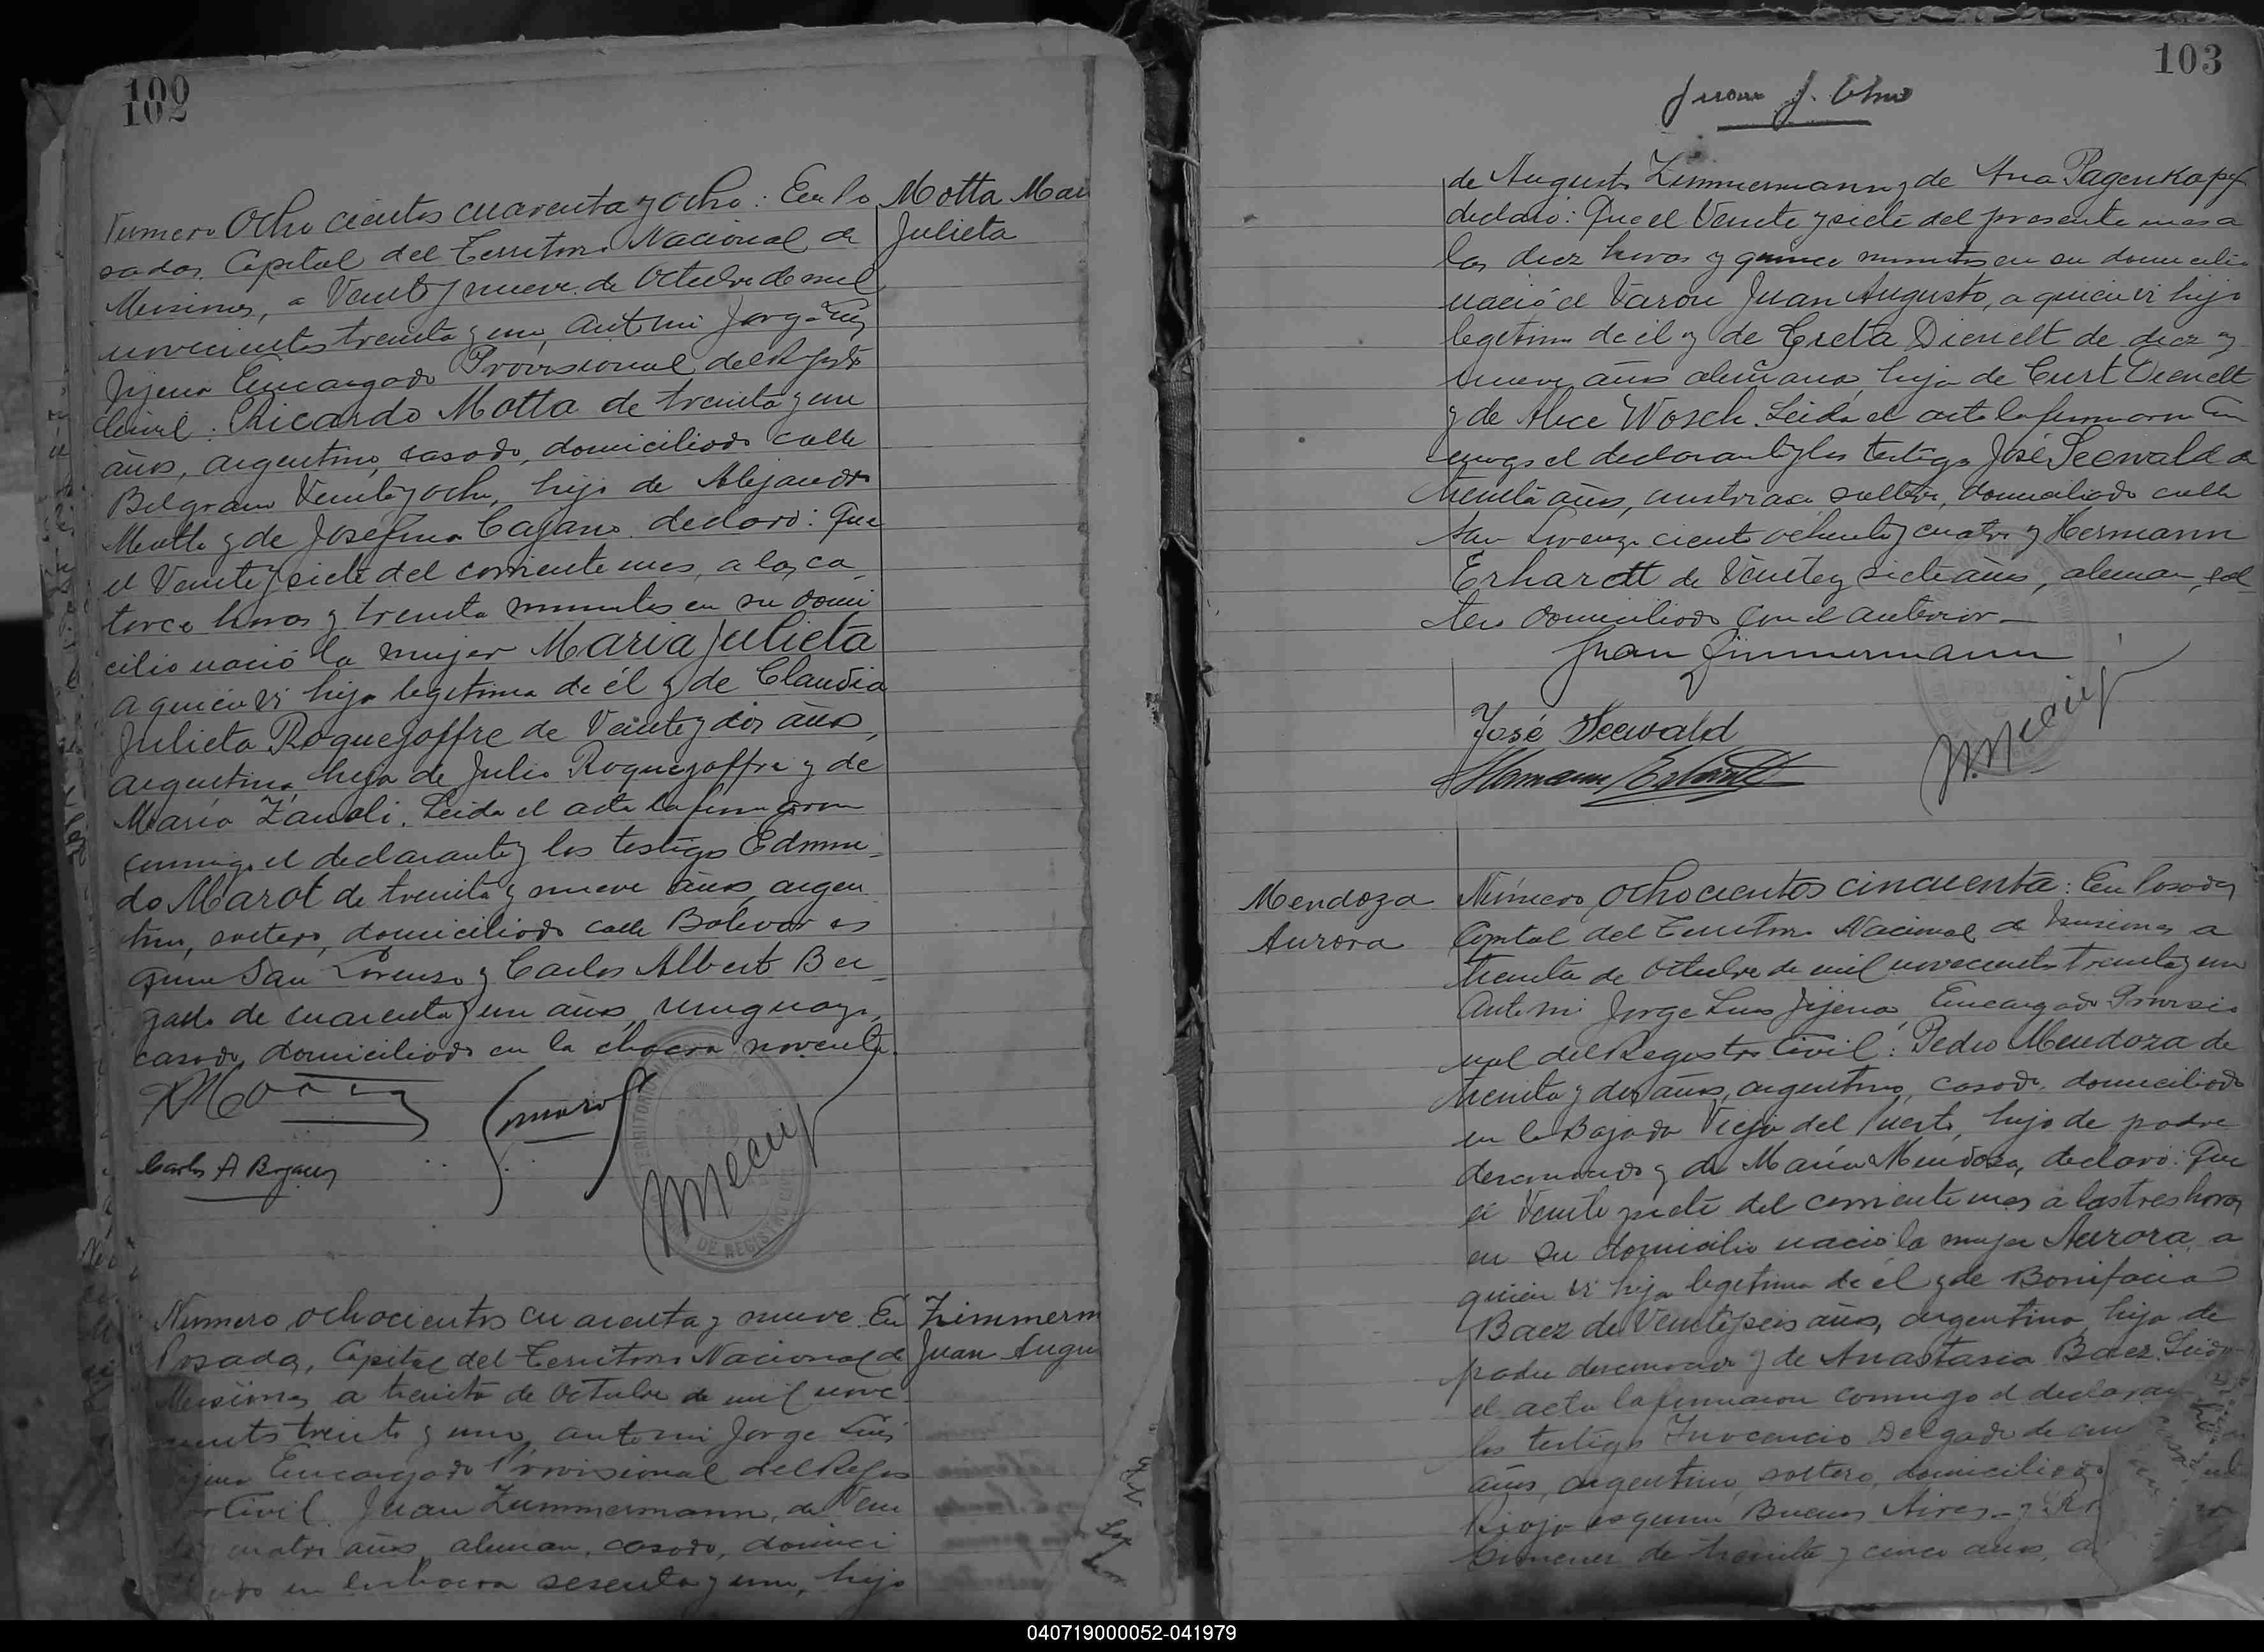 100
102
Numero Ocho cientos cuarenta y ocho: En Po
sadas Capital del Territorio Nacional de
Misiones, a Veinte y nueve de Octubre de mil
novecientos treinta y uno, ante mi Jorge Luis
Jijena Encargado Provisional del Registro
Civil: Ricardo Motta de treinta y un
años, argentino, casado, domiciliado calle
Belgrano Veinte y ocho, hijo de Alejandro
Motta y de Josefina Cajano declaró: Que
el Veinte y siete del corriente mes, a las ca
torce horas y treinta minutos en su domi
cilio nació la mujer Maria Julieta
a quien vi hija legitima de él y de Claudia
Julieta Roquejoffre de Veinte y dos años,
argentina, hija de Julio Roquejoffre y de
María Zándli. Leida el acta la firmaron
conmigo el declarante y los testigos Edmun
do Marot de treinta y nueve años, argen
tino, soltero, domiciliado calle Bolivar es
quina San Lorenzo y Carlos Alberto Ber
gallo de cuarenta y un años, uruguayo,
casado, domiciliado en la chacra noventa.
Motta Mar
Julieta
Carlos A
TERRITORIO
DE REGISTRO CIVIL
Numero ochocientos cuarenta y nueve En
Posadas, Capital del Territorio Nacional de
Misiones a treinta de Octubre de mil nove
cientos treinta y uno, ante mi Jorge Luis
Jijena Encargado Provisional del Regis
tro Civil Juan Zimmermann, de Vein
te y cuatro años, aleman, casado, domici
liado en la chacra sesenta y uno, hijo
Zimmerm
Juan Augu
103
Juan J.
de Augusto Zimmermann y de Ana Pagenkopf
declaró: Que el Veinte y siete del presente mes a
las diez horas y quince minutos en su domicilio
nació el Varon Juan Augusto, a quien vi hijo
legitimo de él y de Greta Dienelt de diez y
nueve años alemana, hija de Curt Dienelt
y de Alice Wosch. Leida el acta la firmaron con
migo el declarante y los testigos José Seewald de
treinta años, austriaco soltero, domiciliado calle
San Lorenzo ciento ochenta y cuatro y Hermann
Erhardt de Veinte y siete años, aleman, sol
tero domiciliado con el anterior.—
Juan Zimmermann
José Seewald
Hermann Erhardt
Mendoza
Aurora
Número ochocientos cincuenta: En Posadas
Capital del Territorio Nacional de Misiones a
treinta de Octubre de mil novecientos treinta y uno
ante mi Jorge Luis Jijena, Encargado Provisio
nal del Registro Civil: Pedro Mendoza de
treinta y dos años, argentino, casado, domiciliado
en la Bajada Vieja del Puerto, hijo de padre
desconocido y de María Mendoza, declaró: Que
el Veinte y siete del corriente mes a las tres horas
en su domicilio nació la mujer Aurora, a
quien vi hija legitima de él y de Bonifacia
Baez de Veinte y seis años, argentina, hija de
padre desconocido y de Anastasia Baez. Leida
el acta la firmaron conmigo el declaran
los testigos Inocencio Delgado de cua
años, argentino, soltero, domiciliado
Rioja esquina Buenos Aires y
Gimenez de treinta y cinco años, a
040719000052-041979